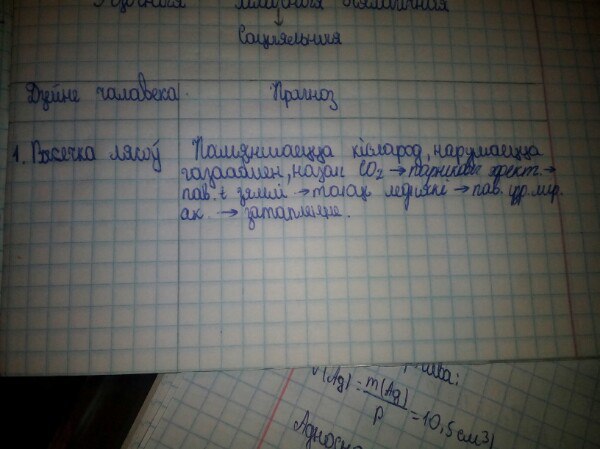 Сацыяльная
Дзеянне чалавека Прагноз
1. Высечка лясоў Памяншаецца кісларод, нарушаецца
газаабмен, назап. CO₂ → парніковы эфект. →
пав. t зямлі → таяць леднікі → пав. ур. мір.
ак. → затапленне.
V(Ag) = m(Ag) / ρ = 10,5 см3